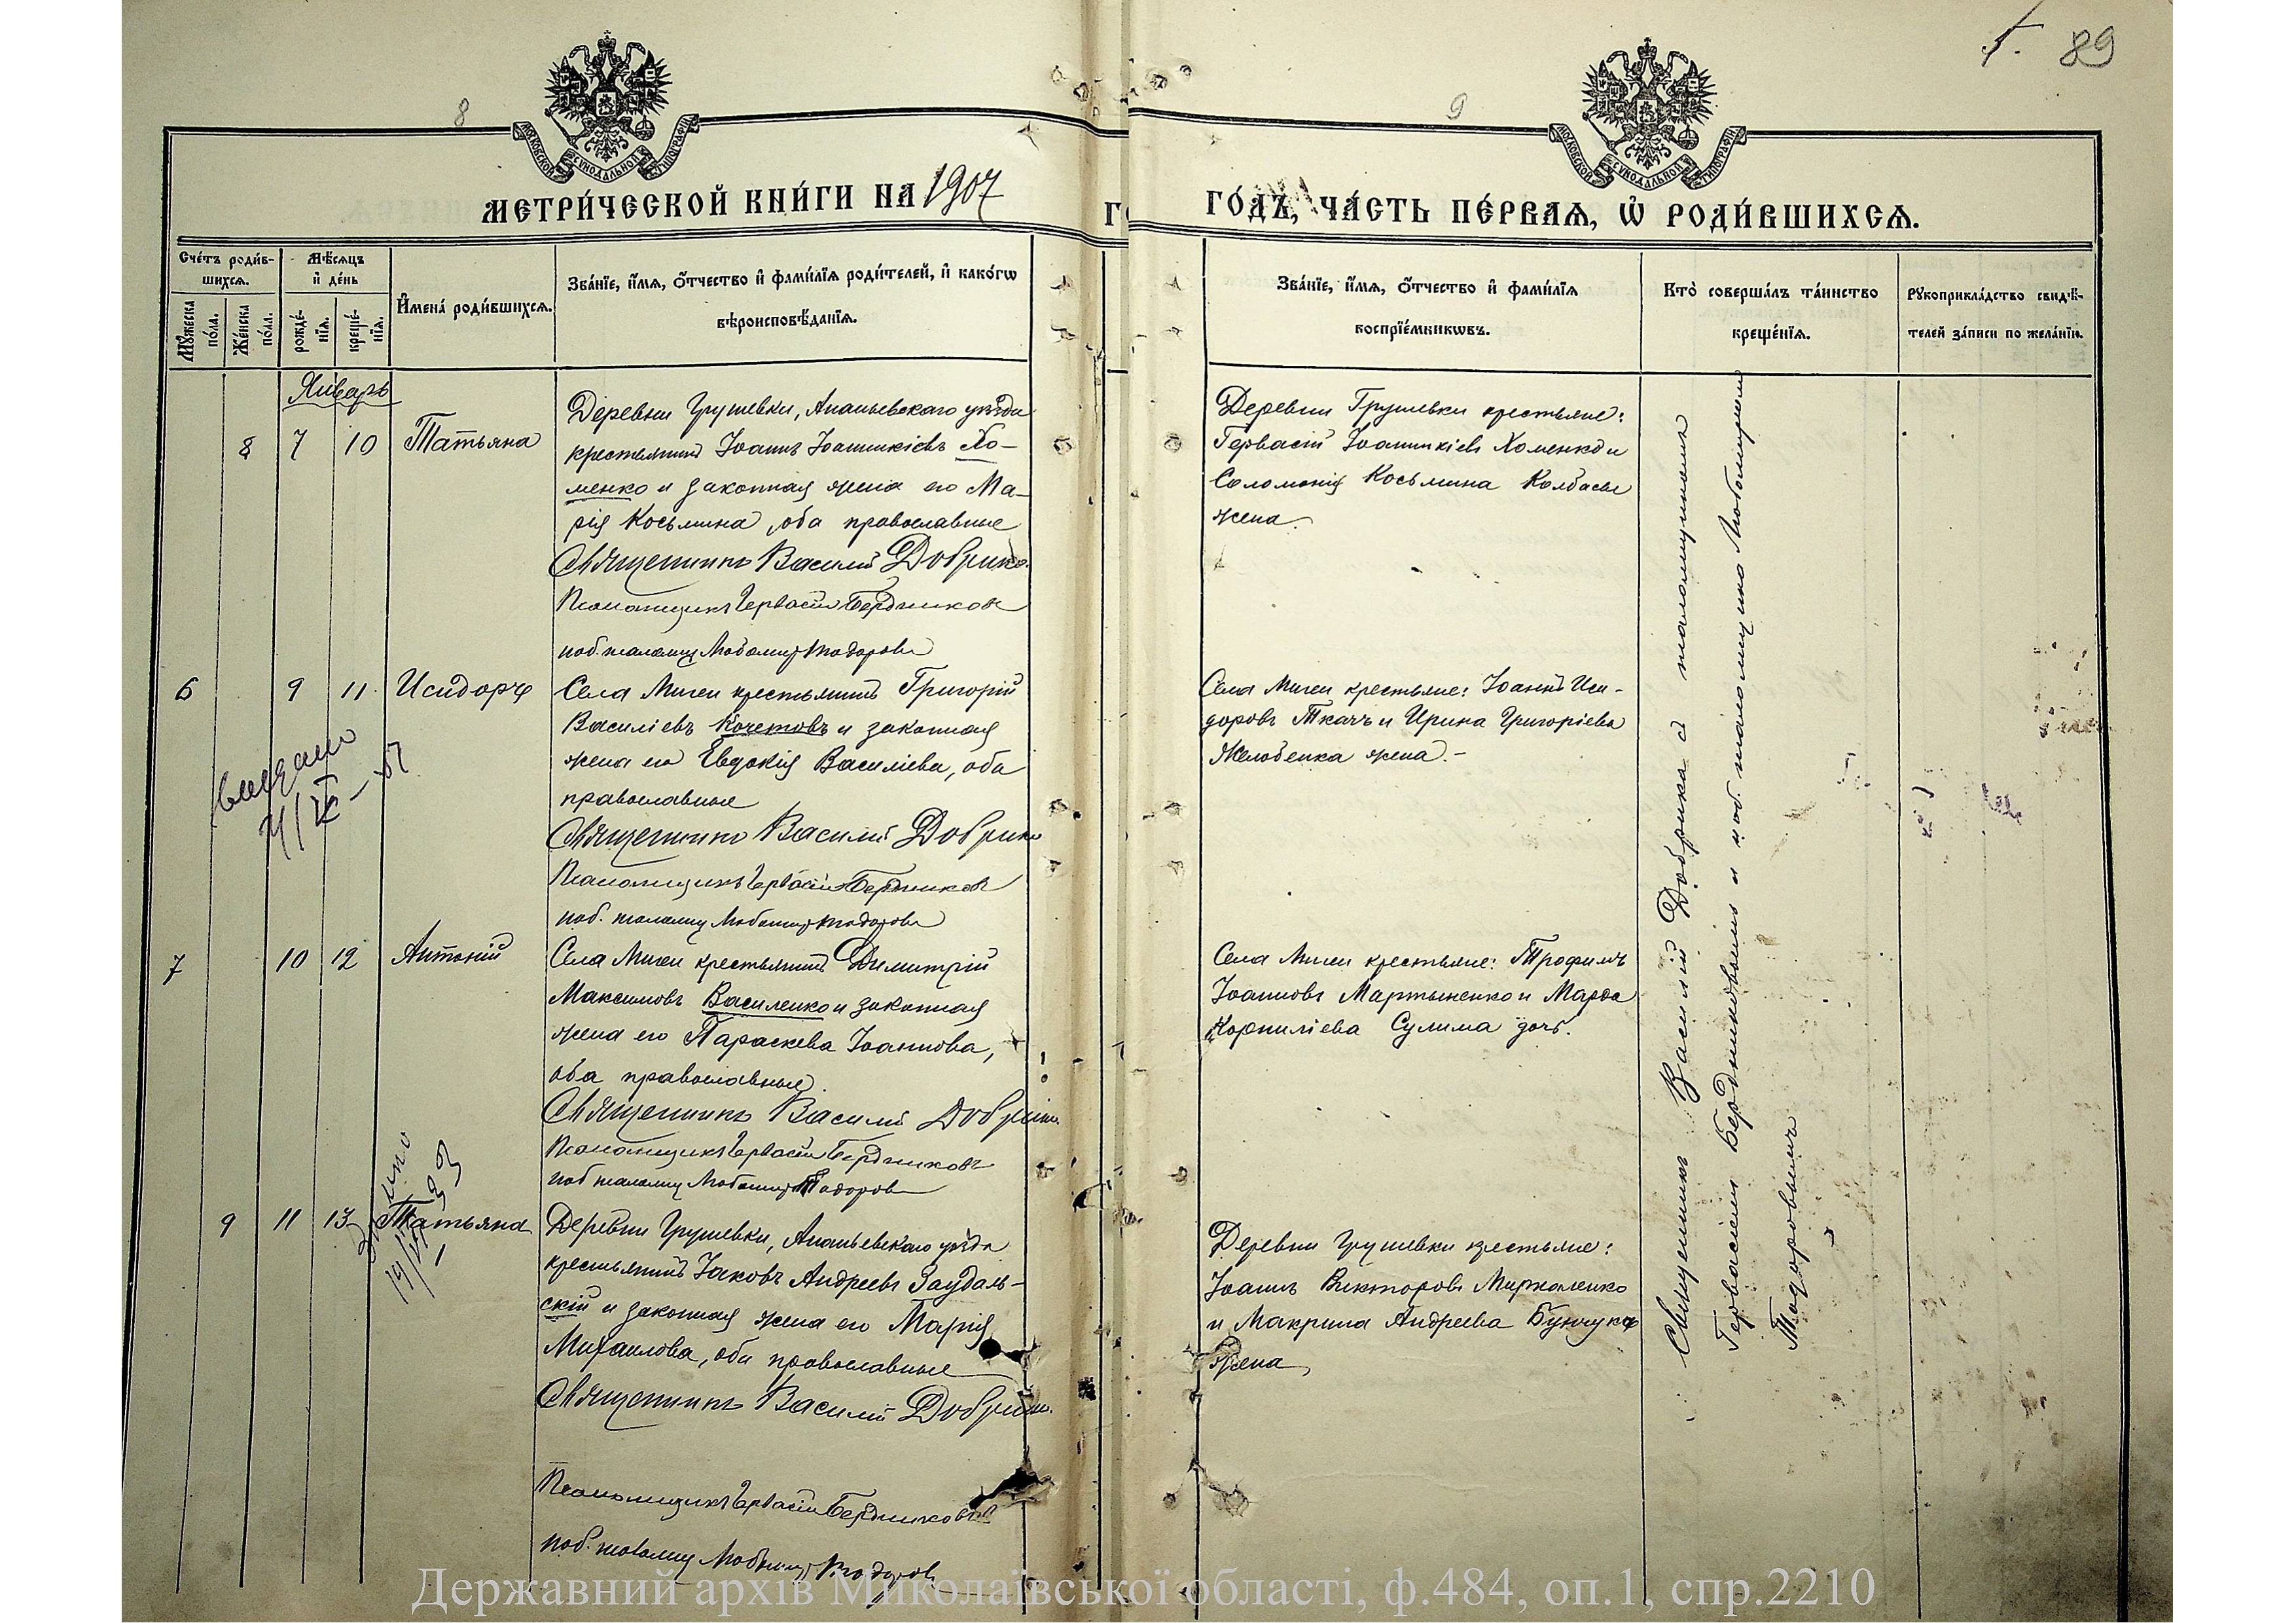 89
8
9
МОСКОВСКОЙ СѴНОДАЛЬНОЙ ТИПОГРАФІИ
МОСКОВСКОЙ СѴНОДАЛЬНОЙ ТИПОГРАФІИ
МЕТРИ́ЧЕСКОЙ КНИ́ГИ НА 1907
ГО́ДЪ, ЧА́СТЬ ПЕ́РВАѦ, Ѡ҆ РОДИ́ВШИХСѦ.
Сче́тъ роди́в-
шихсѧ.
Мꙋ́жеска по́ла.
Же́нска по́ла.
Мѣ́сѧцъ
и҆ де́нь
рожде́-
нїѧ.
креще́-
нїѧ.
И҆мена̀ роди́вшихсѧ.
Зва́нїе, и҆́мѧ, ѻ҆́тчество и҆ фами́лїѧ роди́телей, и҆ како́гѡ
вѣроисповѣ́данїѧ.
Зва́нїе, и҆́мѧ, ѻ҆́тчество и҆ фами́лїѧ
воспрїе́мникѡвъ.
Кто̀ соверша́лъ та́инство
креще́нїѧ.
Рꙋкоприкла́дство свидѣ́-
телей за́писи по жела́нїю.
Январь
8 7 10 Татьяна
Деревни Грушевки, Ананьевскаго уѣзда
крестьянинъ Іоаннъ Іоанникіевъ Хо-
менко и законная жена его Ма-
рія Косьмина, оба православные
Священникъ Василій Добрико
Псаломщикъ Гервасій Бердниковъ
иоб. псаломщ Любомиръ Тодоровъ
Деревни Грушевки крестьяне:
Гервасій Іоанникіевъ Хоменко и
Соломонія Косьмина Колбасы
жена.
6 9 11 Исидоръ
Села Мигеи крестьянинъ Григорій
Василіевъ Кочетовъ и законная
жена его Евдокія Василіева, оба
православные
Священникъ Василій Добрико
Псаломщикъ Гервасій Бердниковъ
иоб. псаломщ Любомиръ Тодоровъ
Села Мигеи крестьяне: Іоаннъ Иси-
доровъ Ткачъ и Ирина Григоріева
Желобенка жена.-
выдано
7 10 12 Антоній
Села Мигеи крестьянинъ Димитрій
Максимовъ Василенко и законная
жена его Параскева Іоаннова,
оба православные.
Священникъ Василій Добрико
Псаломщикъ Гервасій Бердниковъ
иоб псаломщ Любомиръ Тодоровъ
Села Мигеи крестьяне: Трофимъ
Іоанновъ Мартыненко и Марѳа
Корниліева Сулима дочь.
9 11 13 Татьяна
Деревни Грушевки, Ананьевскаго уѣзда
крестьянинъ Іаковъ Андреевъ Заудаль-
скій и законная жена его Марія
Михаилова, оба православные
Священникъ Василій Добрико
Псаломщикъ Гервасій Бердниковъ
иоб. псаломщ Любомиръ Тодоровъ
Деревни Грушевки крестьяне:
Іоаннъ Викторовъ Мирхаленко
и Макрина Андреева Бунчука
жена
Священникъ Василій Добрико съ псаломщикомъ
Гервасіемъ Бердниковымъ и иоб. псаломщико Любомиромъ
Тодоровымъ
Державний архів Миколаївської області, ф.484, оп.1, спр.2210